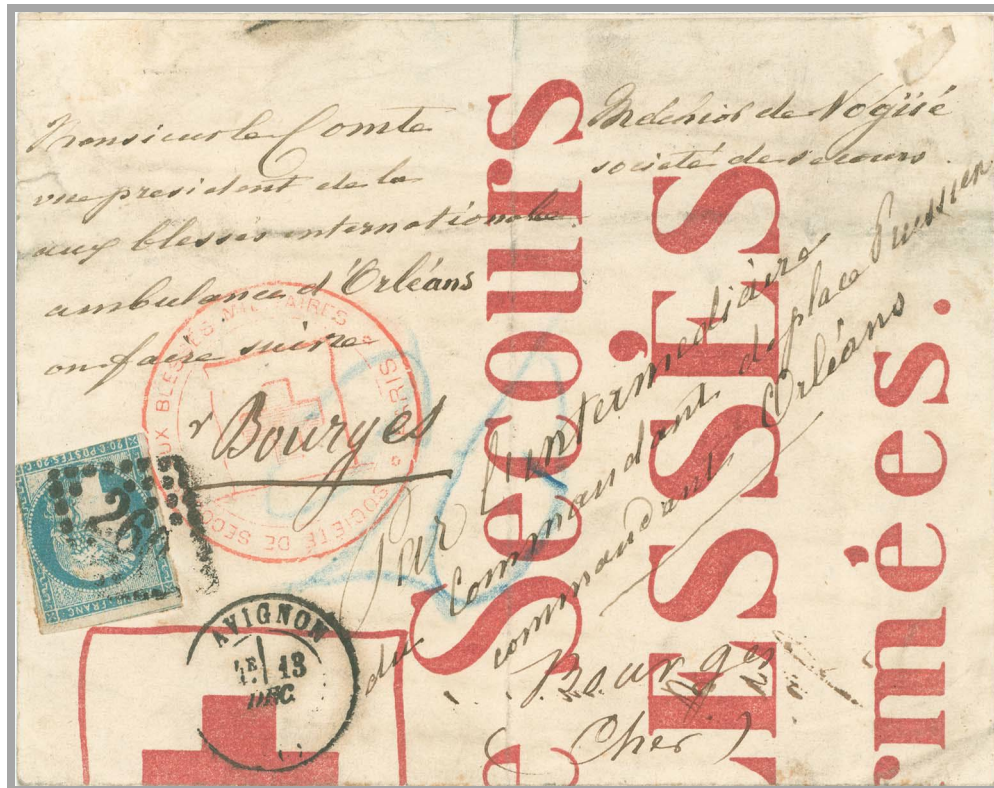 Monsieur le Comte Melchior de Vogüé
vice president de la société de secours
aux blessés internationale
ambulance d'Orléans
ou faire suivre
Bourges
Par l'intermédiaire
du Commandant de place Prussien
commandant Orléans
Bourges
(Cher)
Secours
BLESSÉS
rmées.
SOCIÉTÉ DE SECO UX BLESSÉS MILITAIRES
PARIS
20.C.POSTES.20.C
FRANC
26
AVIGNON
13
DEC.
20